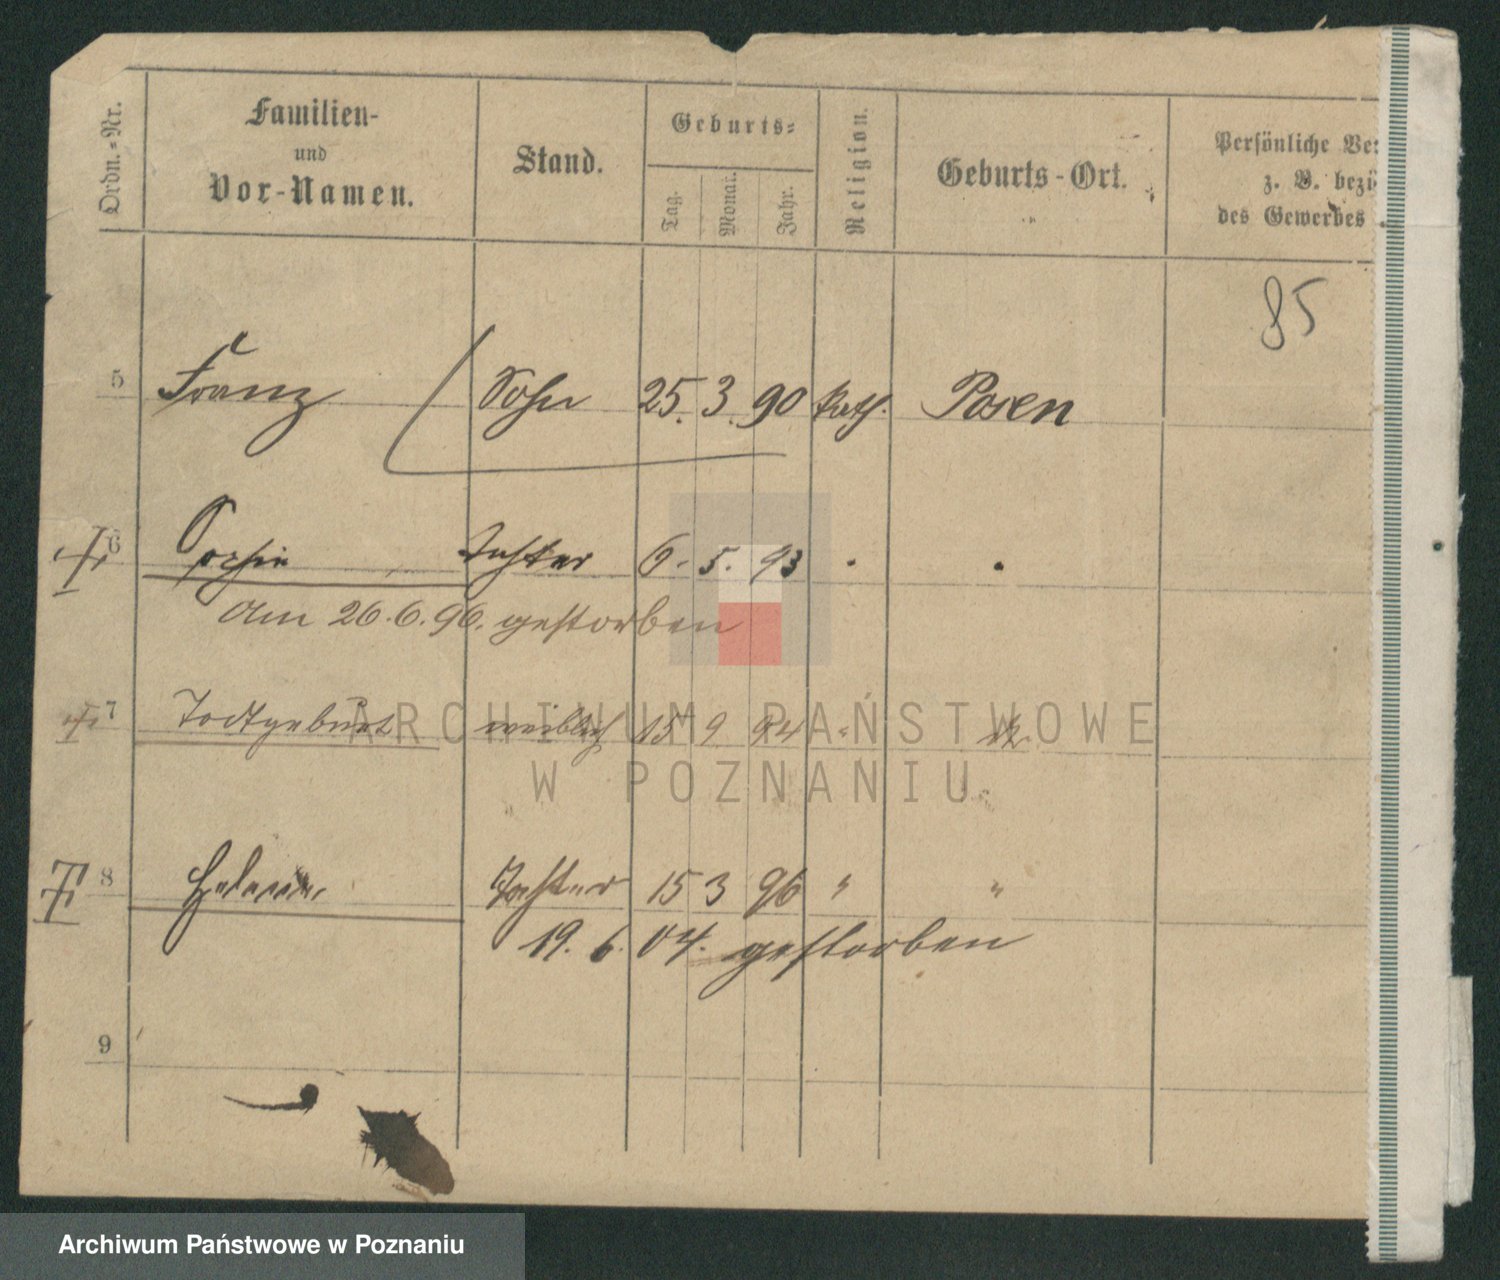 Ordn.-Nr.
Familien-
und
Vor-Namen.
Stand.
Geburts-
Tag.
Monat.
Jahr.
Religion.
Geburts-Ort.
Persönliche Ver
z. B. bezü
des Gewerbes
85
5 Franz Sohn 25. 3. 90 kath. Posen
6 Sophie Tochter 6. 5. 93 " "
Am 26.6.96. gestorben
7 Todtgeburt weiblich 15 9 94 "
8 Helene Tochter 15 3 96 " "
19. 6. 04. gestorben
9
ARCHIWUM PAŃSTWOWE
W POZNANIU
Archiwum Państwowe w Poznaniu